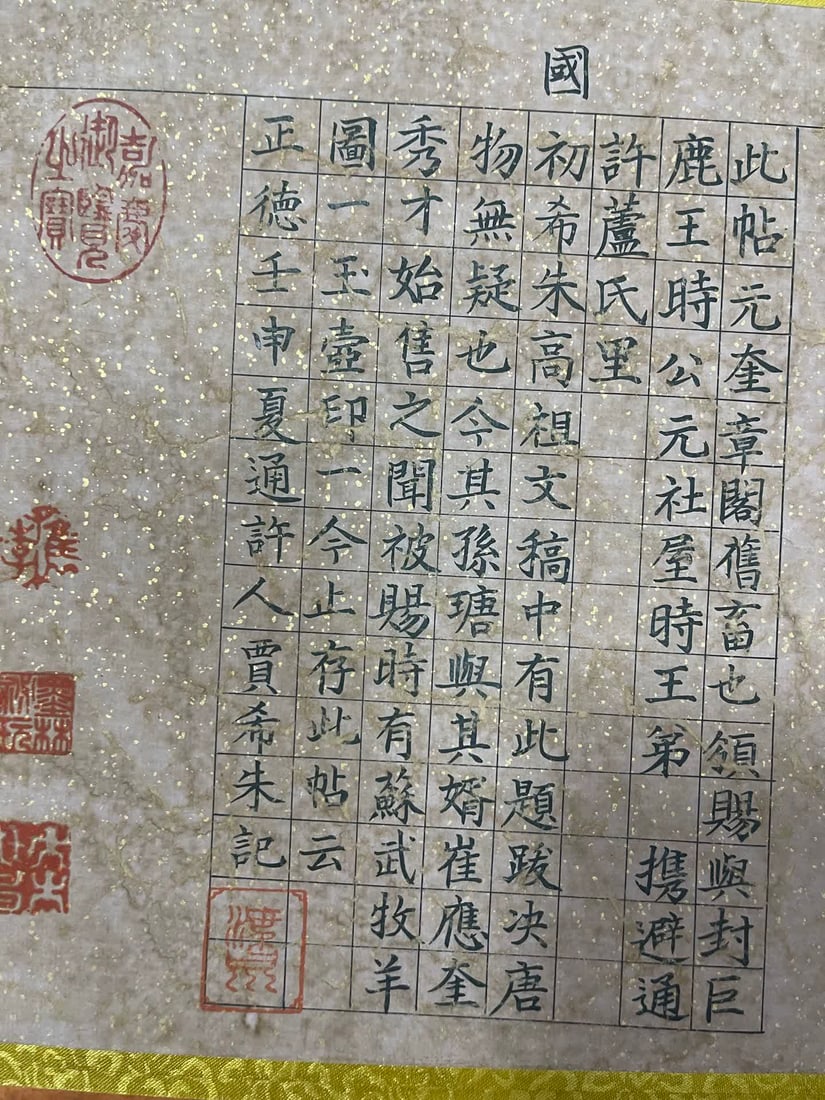 此帖元奎章閣舊畜也頒賜與封巨
鹿王時公元社屋時王第携避通
許蘆氏里
國初希朱高祖文稿中有此題跋决唐
物無疑也今其孫瑭與其婿崔應奎
秀才始售之聞被賜時有蘇武牧羊
圖一玉壺印一今止存此帖云
正德壬申夏通許人賈希朱記
嘉慶御覽之寶